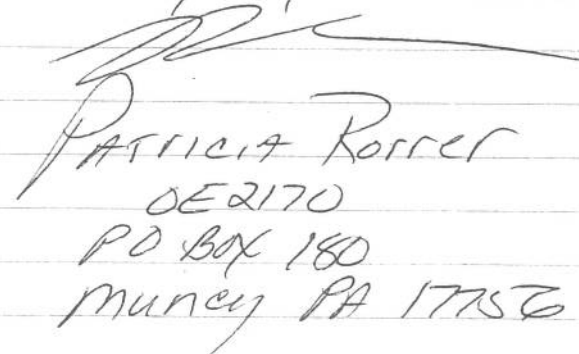 Patricia Rorrer
OE2170
PO BOX 180
Muncy PA 17756